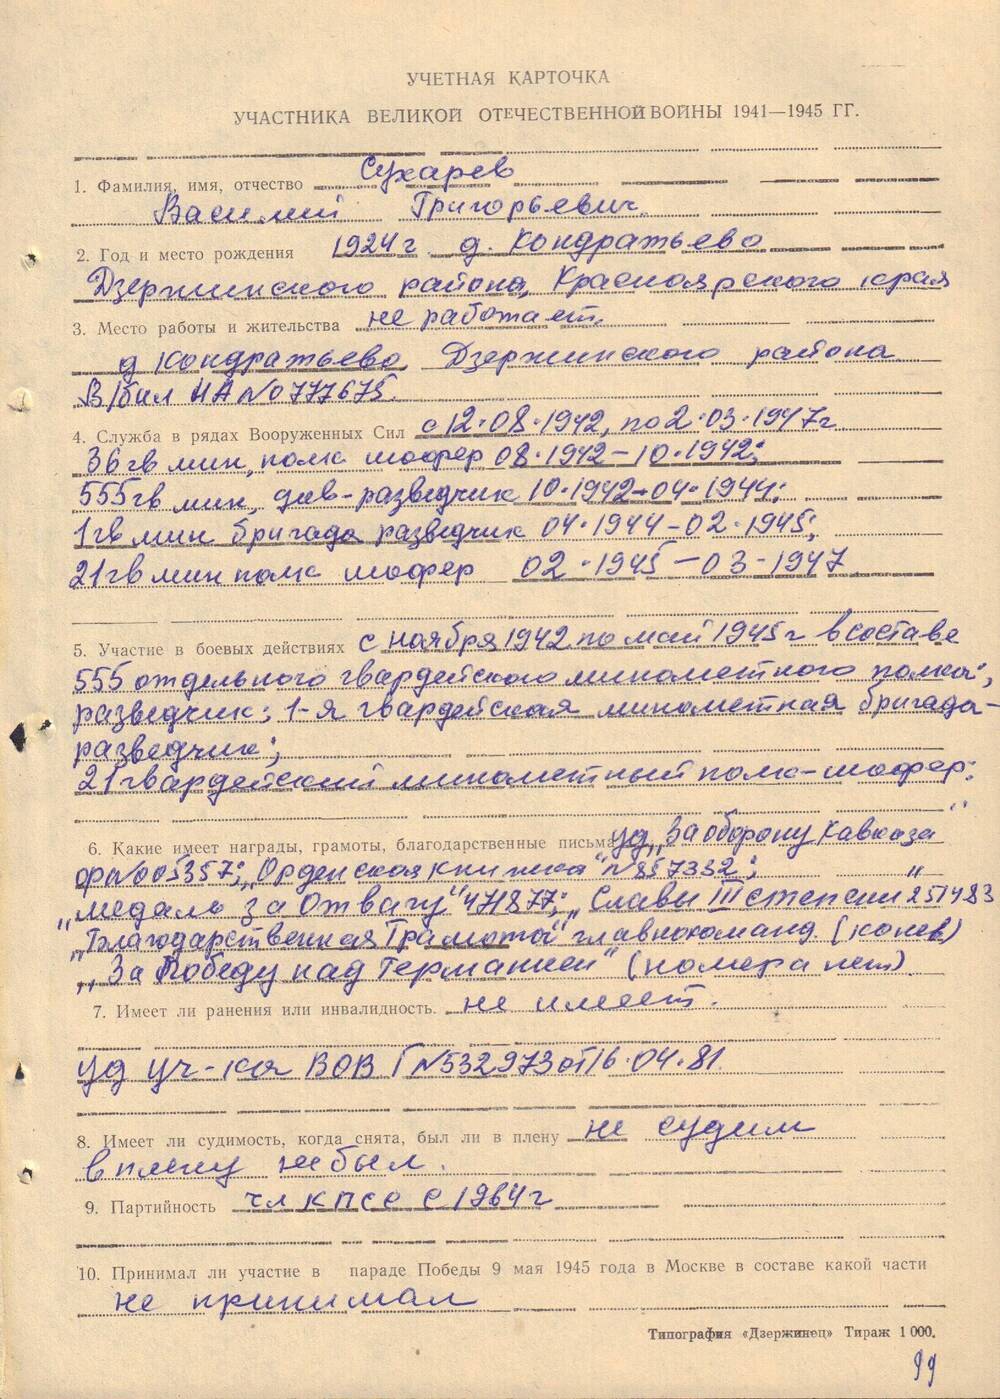 УЧЕТНАЯ КАРТОЧКА
УЧАСТНИКА ВЕЛИКОЙ ОТЕЧЕСТВЕННОЙ ВОЙНЫ 1941—1945 ГГ.
1. Фамилия, имя, отчество Сухарев
Василий Григорьевич.
2. Год и место рождения 1924 г. д. Кондратьево
Дзержинского района, Красноярского края
3. Место работы и жительства не работает.
д Кондратьево, Дзержинского района
В/бил НА №0777675.
4. Служба в рядах Вооруженных Сил с 12.08.1942, по 2.03.1947г
36 гв мин, полк шофер 08.1942-10.1942;
555 гв мин, див-разведчик 10.1942-04.1944;
1 гв мин бригада разведчик 04.1944-02.1945;
21 гв мин полк шофер 02.1945-03-1947
5. Участие в боевых действиях с ноября 1942 по май 1945 г в составе
555 отдельного гвардейского минометного полка;
разведчик; 1-я гвардейская минометная бригада-
разведчик;
21 гвардейский минометный полк-шофер;
6. Какие имеет награды, грамоты, благодарственные письма уд „За оборону Кавказа"
ф №005357; „Орденская книжка" №857332;
„медаль за Отвагу" 471877; „Славы III степени 251483
„Благодарственная Грамота" главнокоманд. (конев)
„За Победу над Германией" (номера нет).
7. Имеет ли ранения или инвалидность. не имеет.
уд уч-ка ВОВ Г №532973 от 16.04.81.
8. Имеет ли судимость, когда снята, был ли в плену не судим
в плену не был.
9. Партийность чл КПСС с 1964г
10. Принимал ли участие в параде Победы 9 мая 1945 года в Москве в составе какой части
не принимал
Типография «Дзержинец» Тираж 1 000.
99